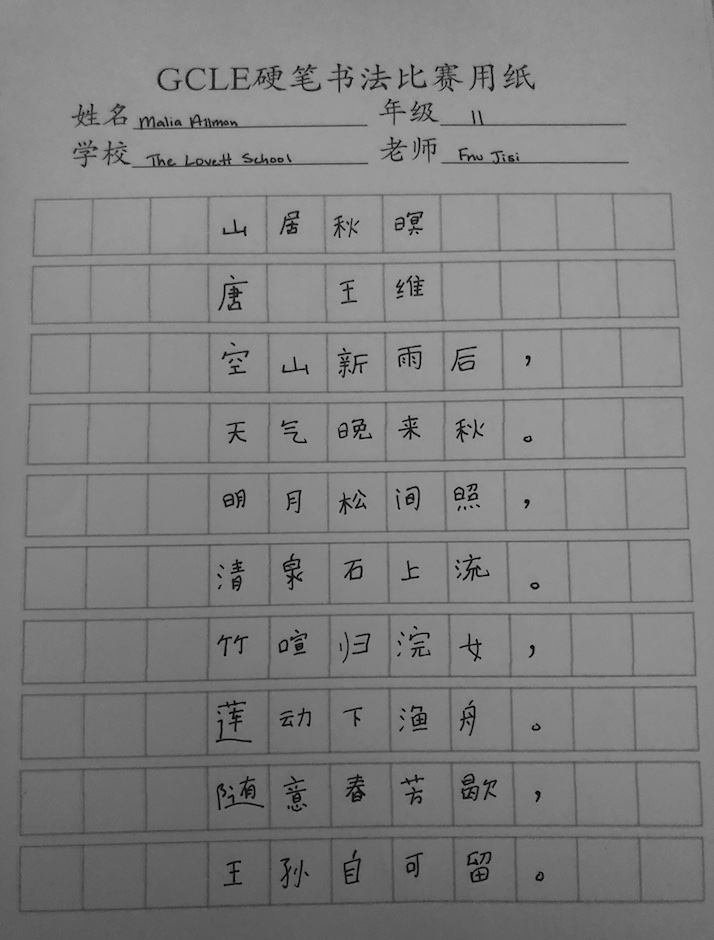 GCLE硬笔书法比赛用纸
姓名 Malia Allmon 年级 11
学校 The Lovett School 老师 Fnu Jisi
山居秋暝
唐 王维
空山新雨后，
天气晚来秋。
明月松间照，
清泉石上流。
竹喧归浣女，
莲动下渔舟。
随意春芳歇，
王孙自可留。